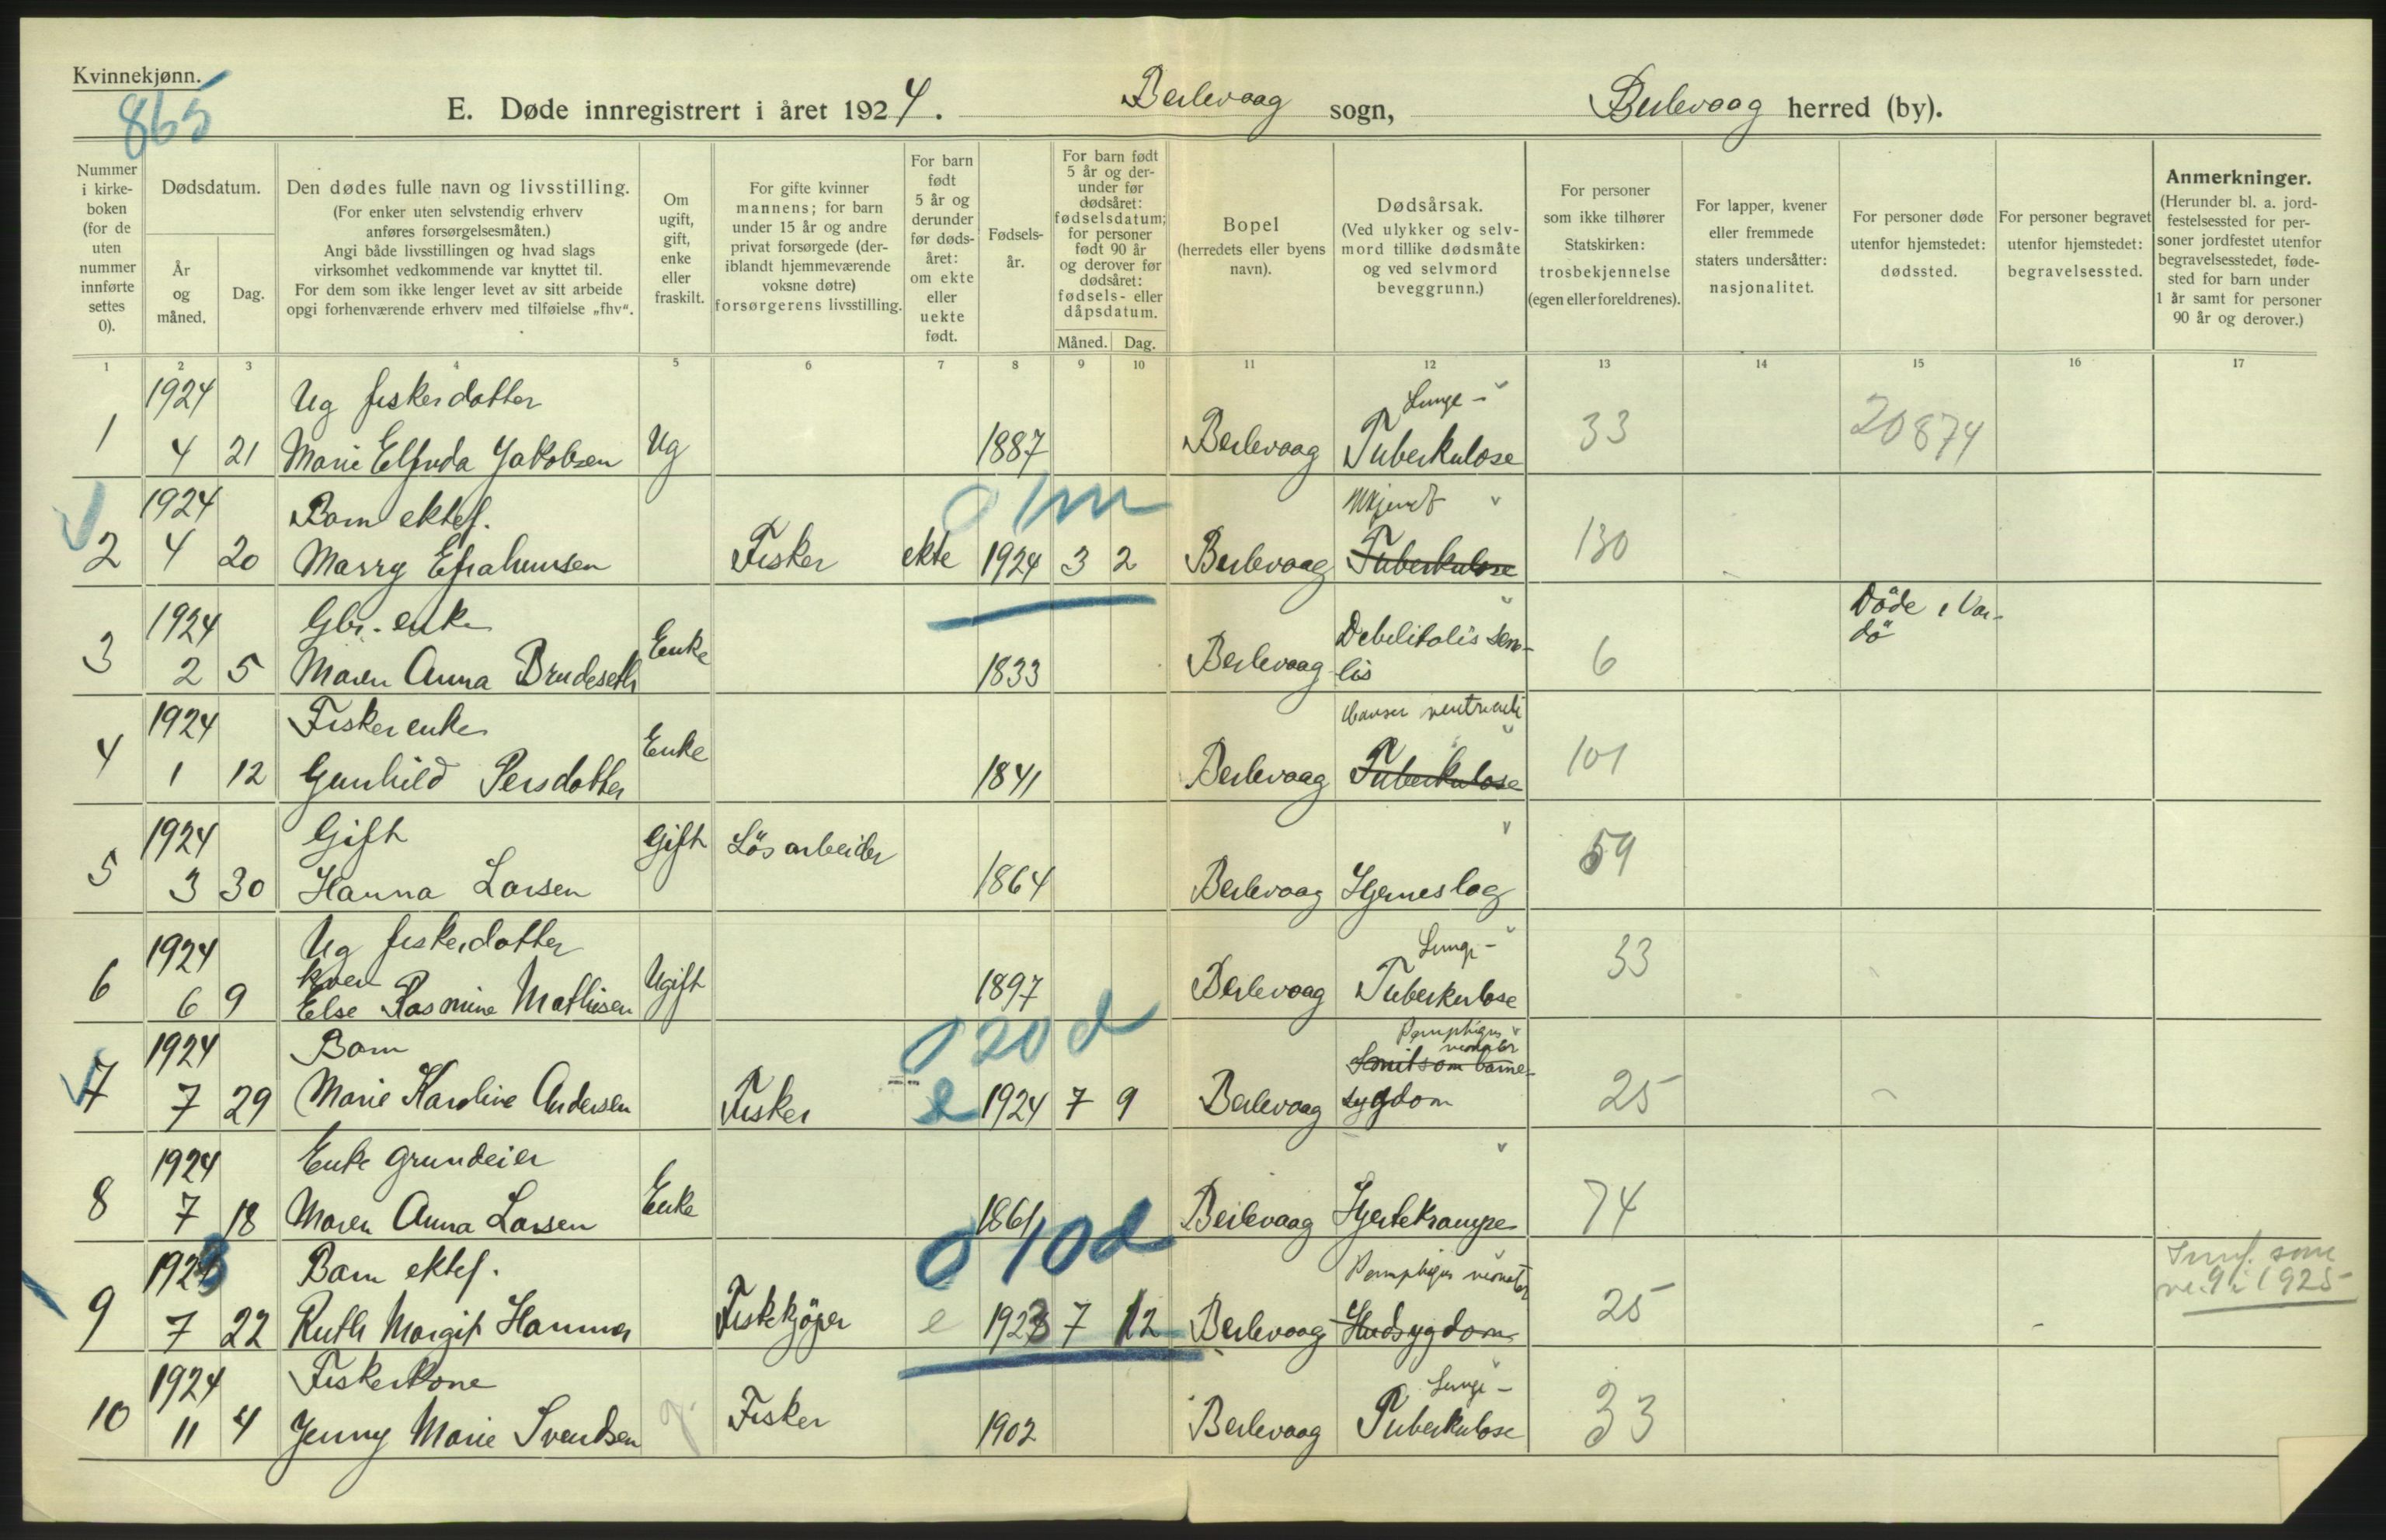 Kvinnekjønn.
865
E. Døde innregistrert i året 1924. Berlevaag sogn, Berlevaag herred (by).
Nummer i kirke-boken (for de uten nummer innførte settes 0).
Dødsdatum.
År og måned.
Dag.
Den dødes fulle navn og livsstilling.
(For enker uten selvstendig erhverv anføres forsørgelsesmåten.)
Angi både livsstillingen og hvad slags virksomhet vedkommende var knyttet til.
For dem som ikke lenger levet av sitt arbeide opgi forhenværende erhverv med tilføielse „fhv“.
Om ugift, gift, enke eller fraskilt.
For gifte kvinner mannens; for barn under 15 år og andre privat forsørgede (der-iblandt hjemmeværende voksne døtre) forsørgerens livsstilling.
For barn født 5 år og derunder før døds-året: om ekte eller uekte født.
Fødsels-år.
For barn født 5 år og der-under før dødsåret: fødselsdatum; for personer født 90 år og derover før dødsåret: fødsels- eller dåpsdatum.
Måned. Dag.
Bopel (herredets eller byens navn).
Dødsårsak. (Ved ulykker og selv-mord tillike dødsmåte og ved selvmord beveggrunn.)
For personer som ikke tilhører Statskirken: trosbekjennelse (egen eller foreldrenes).
For lapper, kvener eller fremmede staters undersåtter: nasjonalitet.
For personer døde utenfor hjemstedet: dødssted.
For personer begravet utenfor hjemstedet: begravelsessted.
Anmerkninger. (Herunder bl. a. jord-festelsessted for per-soner jordfestet utenfor begravelsesstedet, føde-sted for barn under 1 år samt for personer 90 år og derover.)
1 2 3 4 5 6 7 8 9 10 11 12 13 14 15 16 17
1924 Ug fiskerdatter Lunge-
1 4 21 Marie Elfrida Jakobsen Ug 1887 Berlevaag Tuberkulose 33 20874
1924 Barn ektef. 0 1m
2 4 20 Marry Efraimsen Fisker ekte 1924 3 2 Berlevaag Tuberkulose 130
1924 Gbr. enke Enke Debilitatis seni- Døde i Var-
3 2 5 Maren Anna Brudeseth 1833 Berlevaag lis 6 dö
1924 Fisker enke Enke Cancer ventriculi
4 1 12 Gunhild Persdatter 1841 Berlevaag Tuberkulose 101
1924 Gift Gift Lös arbeider
5 3 30 Hanna Larsen 1864 Berlevaag Hjerneslag 59
1924 Ug fiskerdatter Lunge-
kven
6 6 9 Else Rasmine Mathisen Ugift 1897 Berlevaag Tuberkulose 33
1924 Barn 0 20 d Pemphigus neonator
Smitsom barne-
7 7 29 Marie Karoline Andersen Fisker e 1924 7 9 Berlevaag sygdom 25
1924 Enke grundeier
8 7 18 Maren Anna Larsen Enke 1861 Berlevaag Hjertekrampe 74
1923 Barn ektef. 0 10d Pemphigus neonator Innf. som
nr. 9 i 1925
9 7 22 Ruth Margit Hammer Fiskekjöper e 1923 7 12 Berlevaag Hudsygdom 25
1924 Fiskerkone Lunge-
10 11 4 Jenny Marie Svendsen g. Fisker 1902 Berlevaag Tuberkulose 33